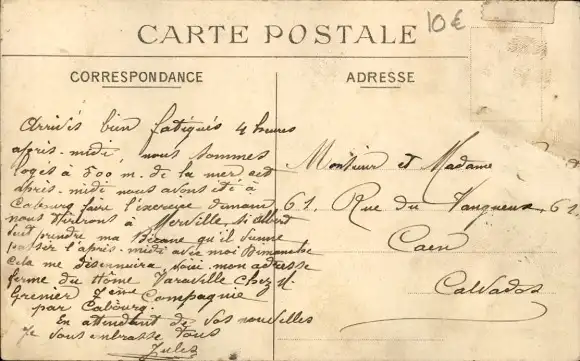 CARTE POSTALE
10€
CORRESPONDANCE
ADRESSE
Arrivés bien fatigués 4 heures
après-midi, nous sommes
logés à 500 m. de la mer cet
après-midi nous avons été à
Cabourg faire l'exercice demain
nous tirerons à Merville, si Albert
veut prendre ma Bécane qu'il vienne
passer l'après-midi avec moi Dimanche
cela me désennuira voici mon adresse
ferme du Hôme Varaville chez M.
Grenier 7ème Compagnie
par Cabourg.
En attendant de vos nouvelles
Je vous embrasse tous
Jules
Monsieur et Madame
61. Rue du Vaugueux, 61
Caen
Calvados